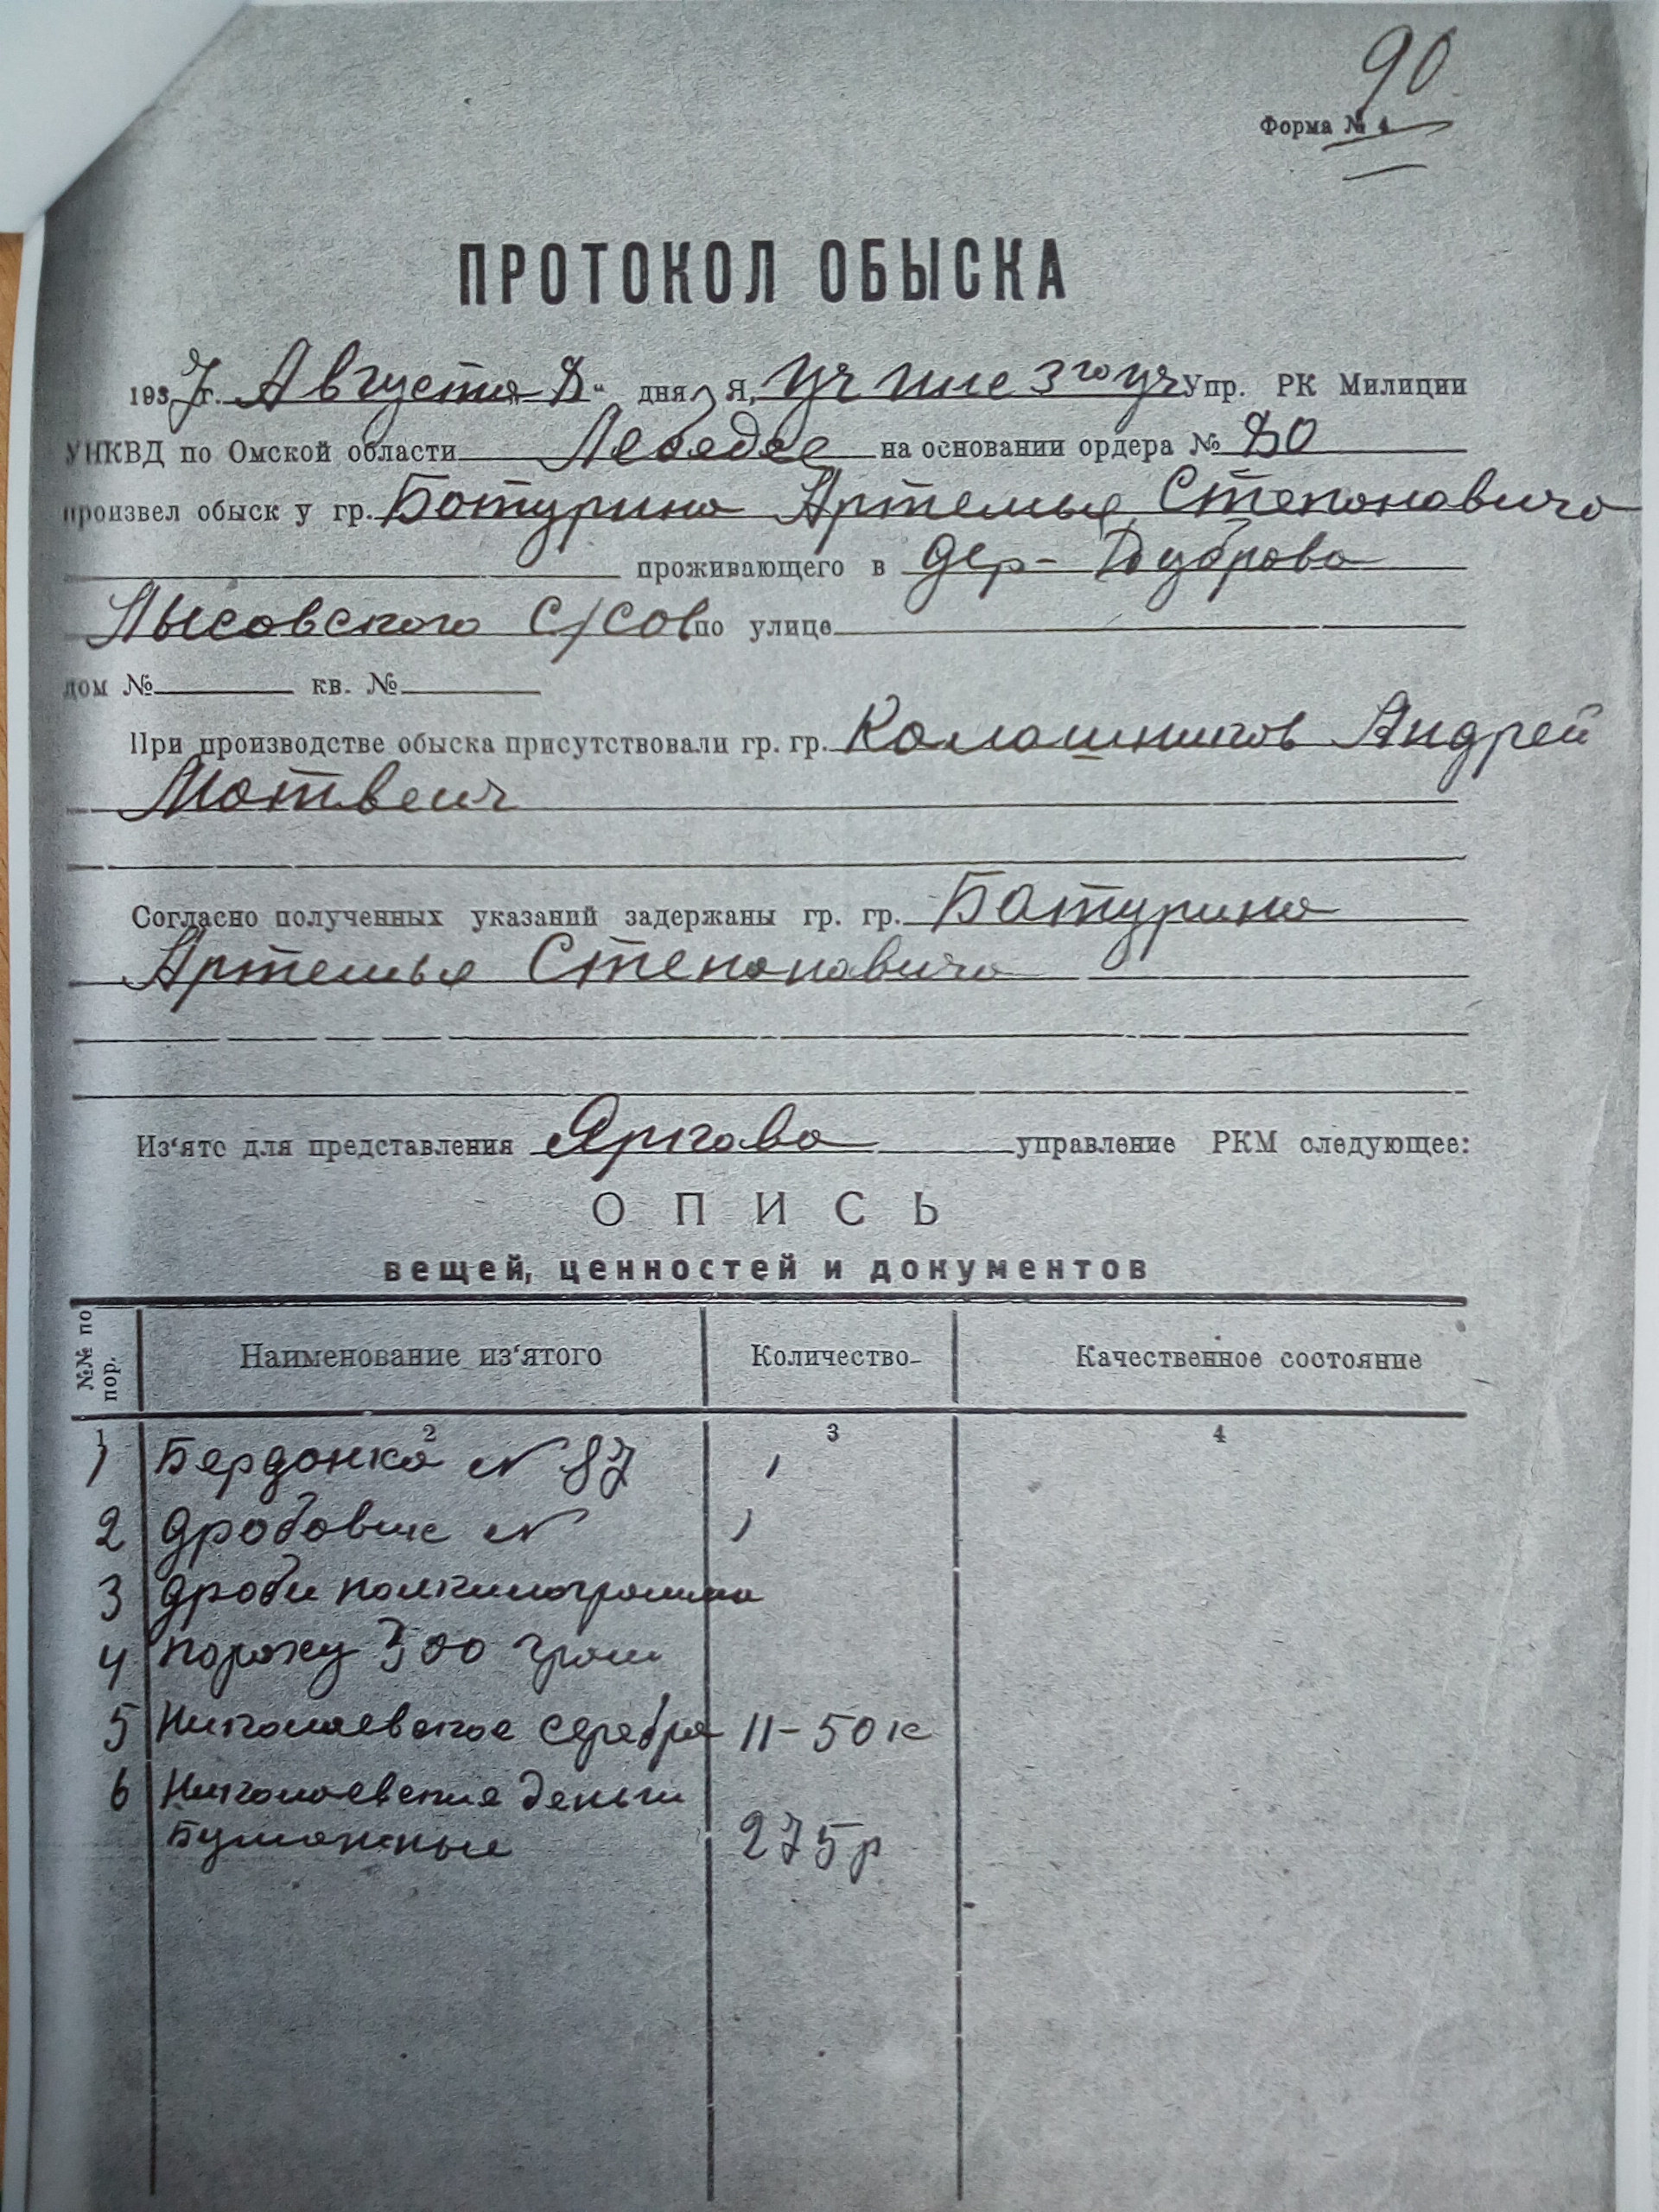 90
Форма № 4
ПРОТОКОЛ ОБЫСКА
1937 г. Августа 8 " дня, Я, Уч 3го уч Упр. РК Милиции
УНКВД по Омской области на основании ордера № 80
произвел обыск у гр. Ботурина Артемья Степоновича
проживающего в дер- Дуброво
Лысовского С/Сов по улице
дом № кв. №
При производстве обыска присутствовали гр. гр. Коло​шников Андрей
Мотвеич
Согласно полученных указаний задержаны гр. гр. Ботурина
Артемья Степоновича
Из‘ято для представления Яркова управление РКМ следующее:
ОПИСЬ
вещей, ценностей и документов
№№ по пор. Наименование из‘ятого Количество Качественное состояние
1 2 3 4
1 Бердонка N 87 1
2 дробовик N 1
3 дроби полкилограмма
4 пороху 300 грам
5 Николаевское серебро 11-50 к
6 Николоевские деньги
бумажные 275 р